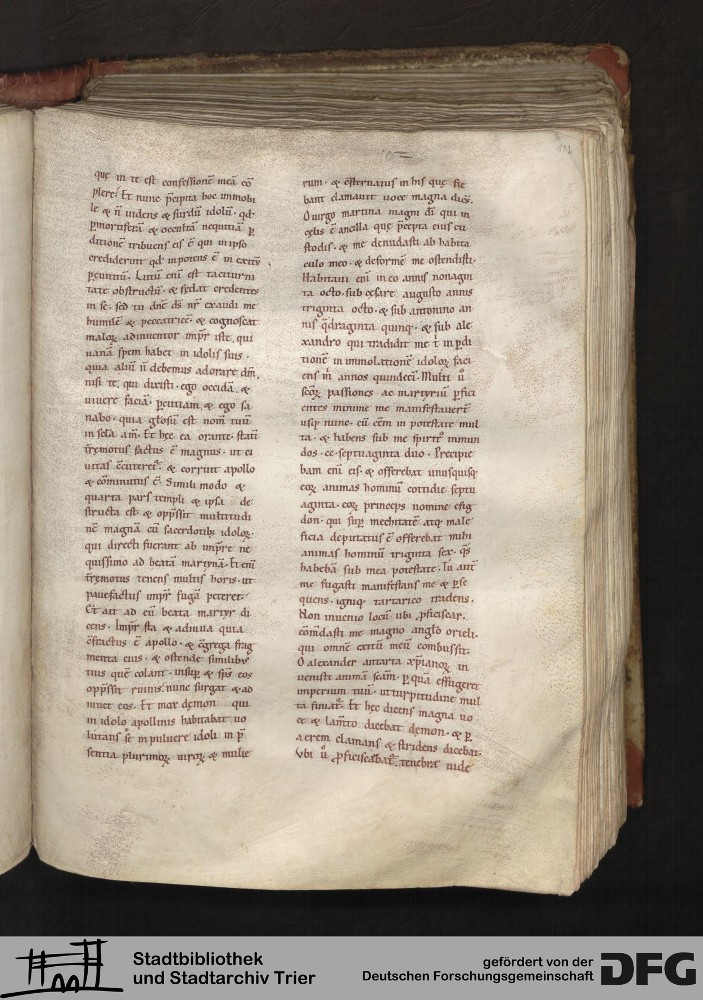 quę in te est confessionē meā cō
plere. Et nunc p̄cipita hoc immobi
le & n̄ videns & surdū idolū. qđ
p̱morisferā & occultā nequitiā p̱
ditionē tribuens eis ē qui in ipso
crediderint qđ inpotens ē in exitū
p̱euntiū. Litū enī est taciturni
tate obstructū. & sedat credentes
in se. sed tu dn̄e ds̄ nr̄ exaudi me
humilē & peccatricē. & cognoscat
maloꝝ adinventor imp̱r iste. qui
vanā spem habet in idolis suis.
quia aliū n̄ debemus adorare dm̄.
nisi te. qui dixisti. ego occidā. &
vivere faciā. p̱cutiam. & ego sa
nabo. quia gl̄osū est nom̄ tuū
in sc̄la am̄. Et hęc ea orante. stati
tr̄emotus factus ē magnus. ut ci
vitas c̄cuteret᷑. & corruit apollo
& cōminutus ē. Simili modo &
quarta pars templi & ipsa de
structa est & opp̄ssit multitudi
nē magnā cū sacerdotib; idoloꝝ.
qui directi fuerant ab imp̱re ne
quissimo ad beatā martynā. Et enī
tr̄emotus tenens multis horis. ut
pavefactus imp̱r fugā peteret.
Et ait ad eū beata martyr di
cens. Imp̱r sta & adiuva quia
c̄fractus ē apollo. & c̄grega frag
menta eius. & ostende similibus
tuis quē colant. insup̱ & sp̄s eos
opp̄ssit ruinis. nunc surgat & ad
iuvet eos. Et mox dęmon qui
in idolo apollinis habitabat vo
lutans se in pulvere idoli in p̄
sentia plurimoꝝ viroꝝ & mulie
rum. & c̄sternatus in his quę fie
bant clamavit voce magna dicēs.
O virgo martina magni dī qui in
cęlis ē ancilla quę p̄cepta eius cu
stodis. & me denudasti ab habita
culo meo. & deformē me ostendisti.
Habitavi enī in eo annis nonagin
ta octo. sub cesare augusto annis
triginta octo. & sub antonino an
nis q̄draginta quinq;. & sub ale
xandro qui tradidit me t̄ in p̱di
tionē in immolationē idoloꝝ faci
ens m̄ annos quindecī. Multi ū
sc̄oꝝ passiones ac martyriū p̱fici
entes minime me manifestaverūt
usq; nunc. cū eēm in potestate mul
ta. & habens sub me spiritus inmun
dos. cc. septuaginta duo. Precipie
bam enī eis. & offerebat unusquisq;
eoꝝ animas hominū cotidie septu
aginta. eoꝝ princeps nomine esig
don. qui sup̱ mechitatē atq; male
ficia deputatus ē offerebat mihi
animas hominū triginta sex. q̄s
habebā sub mea potestate. Tu aut̄
me fugasti manifestans me & p̱se
quens. igniq; tartarico tradens.
Non invenio locū ubi p̱ficiscar.
cōmdasti me magno anglo orieli.
qui omnē exitū meū combussit.
O alexander antarta xp̄ianoꝝ in
venisti animā scām. p̱ quā effugeret
imperium tuū. ut turpitudine mul
ta finiat᷑. Et hęc dicens magna vo
ce & lamto dicebat dęmon. & p̱
aerem clamans & stridens dicebat.
Ubi ū p̱ficiscebat᷑. tenebrę vide
Stadtbibliothek
und Stadtarchiv Trier
gefördert von der
Deutschen Forschungsgemeinschaft
DFG